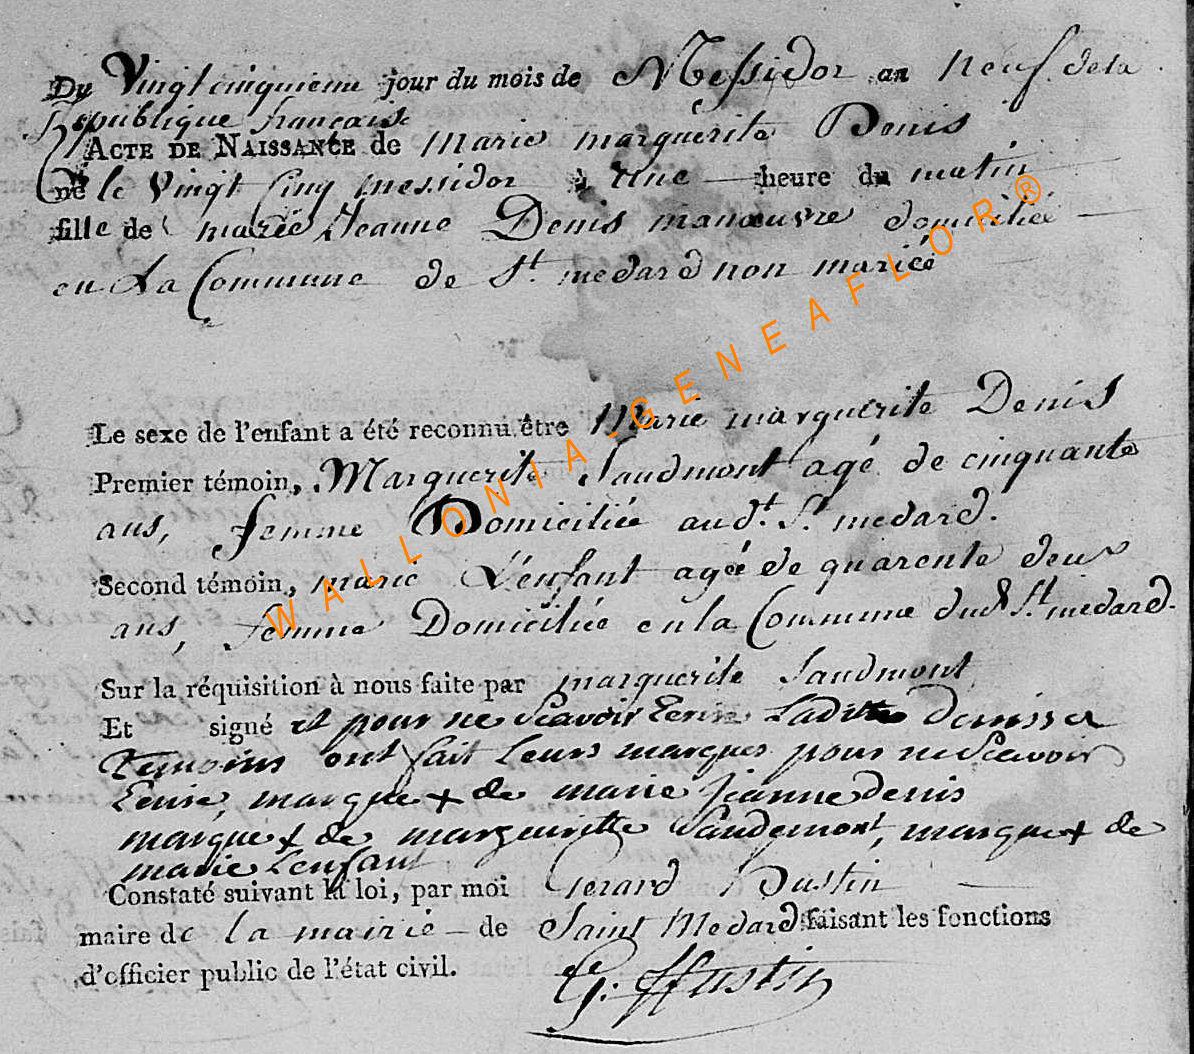 Du Vingt cinquieme jour du mois de Messidor an neuf de la
Republique francaise
ACTE DE NAISSANCE de marie marguerite Denis
né le Vingt Cinq messidor à Une heure du matin
fille de marie Jeanne Denis manœuvre domiciliée
en La Commune de St. medard non mariée
Le sexe de l'enfant a été reconnu être Marie marguerite Denis
Premier témoin, Marguerite Saudmont agé de cinquante
ans, femme Domiciliée au dt. St medard.
Second témoin, marie L'enfant agée de quarente deux
ans, femme Domiciliée en la Commune dud St medard.
Sur la réquisition à nous faite par marguerite Saudmont
Et signé et pour ne Scavoir Ecrire Ladite Denis et
Temoins ont fait Leurs marques pour ne Scavoir
Ecrire, marque + de marie jeanne denis
marque + de margueritte Saudemont, marque + de
marie Lenfant
Constaté suivant la loi, par moi Gerard Hustin
maire de la mairie de Saint Medard faisant les fonctions
d'officier public de l'état civil.
G: Hustin
WALLONIA.GENEAFLOR®